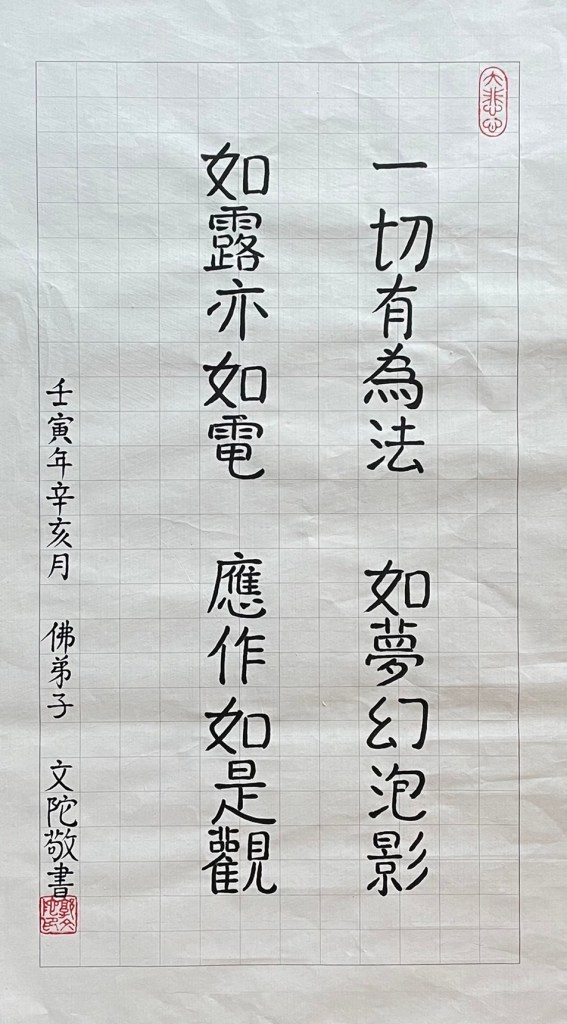 大悲心
一切有為法　如夢幻泡影
如露亦如電　應作如是觀
壬寅年辛亥月　佛弟子　文陀敬書
郭文陀印